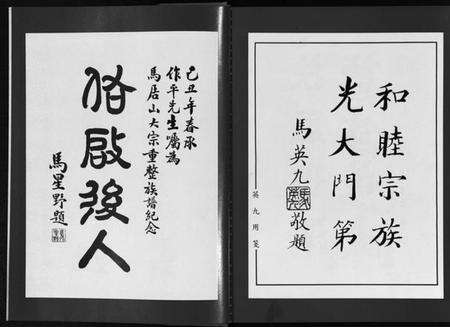 和睦宗族
光大門第
馬英九敬題
英九用箋
己丑年春承
作平先生囑為
馬居山大宗重整族譜紀念
佑啟後人
馬星野題